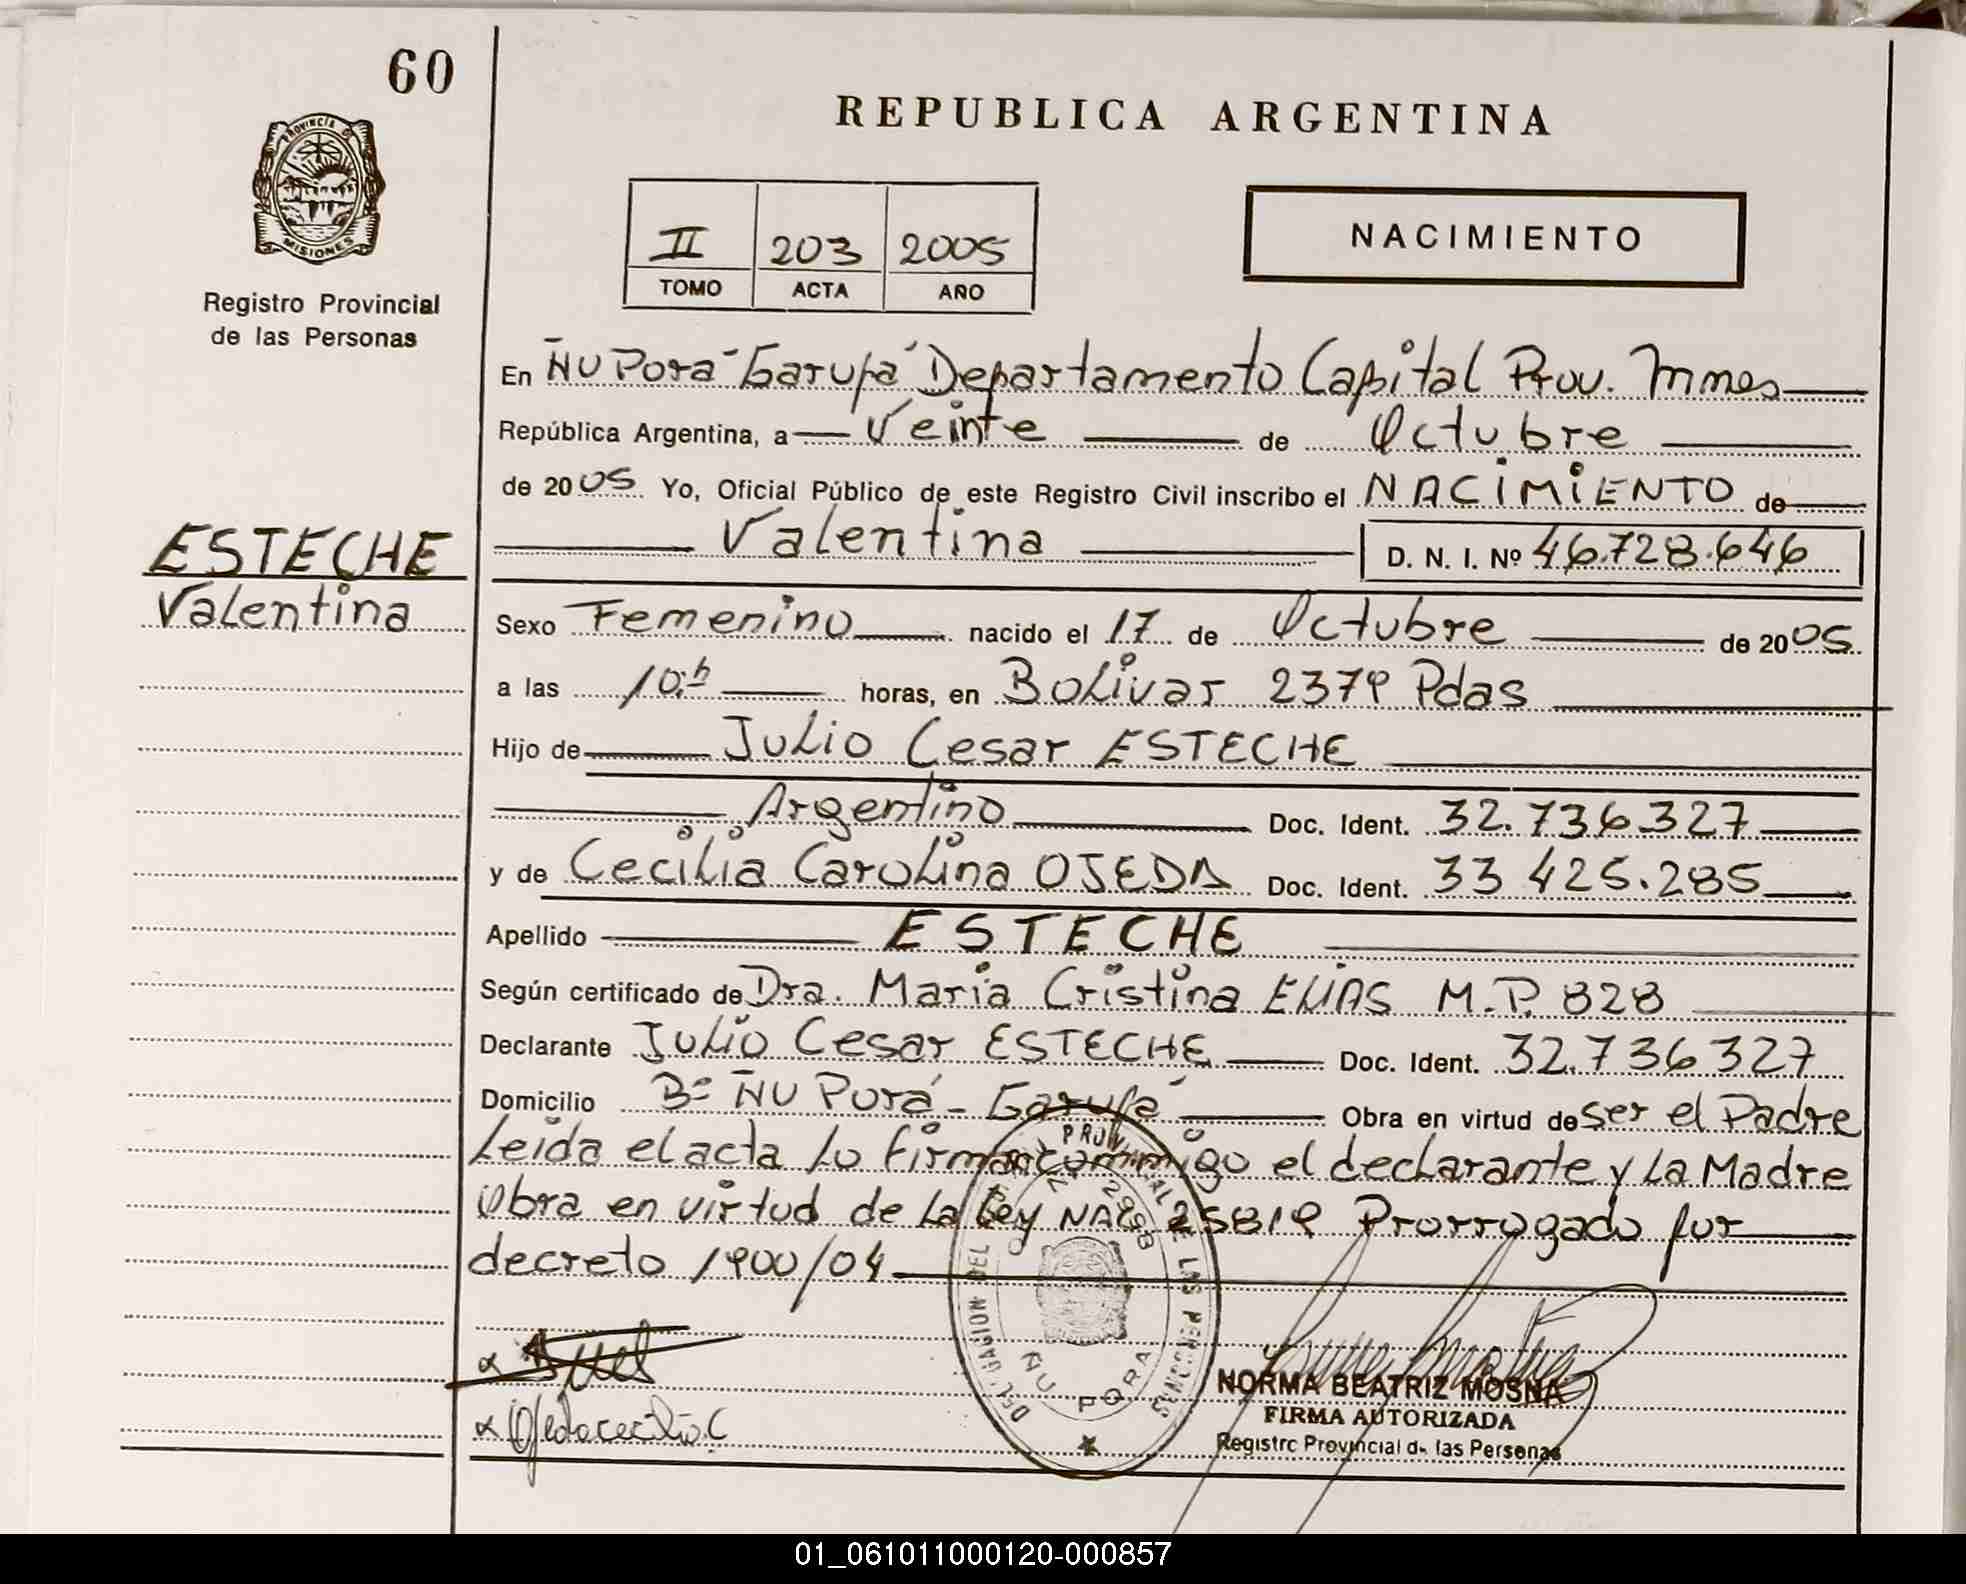 60
REPUBLICA ARGENTINA
PROVINCIA DE
MISIONES
Registro Provincial
de las Personas
II 203 2005
TOMO ACTA AÑO
NACIMIENTO
En Ñu Porá - Garupá Departamento Capital Prov. Mnes
República Argentina, a Veinte de Octubre
de 2005 Yo, Oficial Público de este Registro Civil inscribo el NACIMIENTO de
Valentina D. N. I. Nº 46.728.646
ESTECHE
Valentina
Sexo Femenino nacido el 17 de Octubre de 2005
a las 10:h horas, en Bolivar 2379 Pdas
Hijo de Julio Cesar ESTECHE
Argentino Doc. Ident. 32.736327
y de Cecilia Carolina OJEDA Doc. Ident. 33 425.285
Apellido ESTECHE
Según certificado de Dra. Maria Cristina ELIAS M.P. 828
Declarante Julio Cesar ESTECHE Doc. Ident. 32.736327
Domicilio Bº Ñu Porá - Garupá Obra en virtud de ser el Padre
Leida el acta lo firman commigo el declarante y la Madre
Obra en virtud de la Ley NAC 25819 Prorrogado por
decreto 1900/04
Ojeda cecilia.C
ÑU PORA
NORMA BEATRIZ MOSNA
FIRMA AUTORIZADA
Registro Provincial de las Personas
01_061011000120-000857